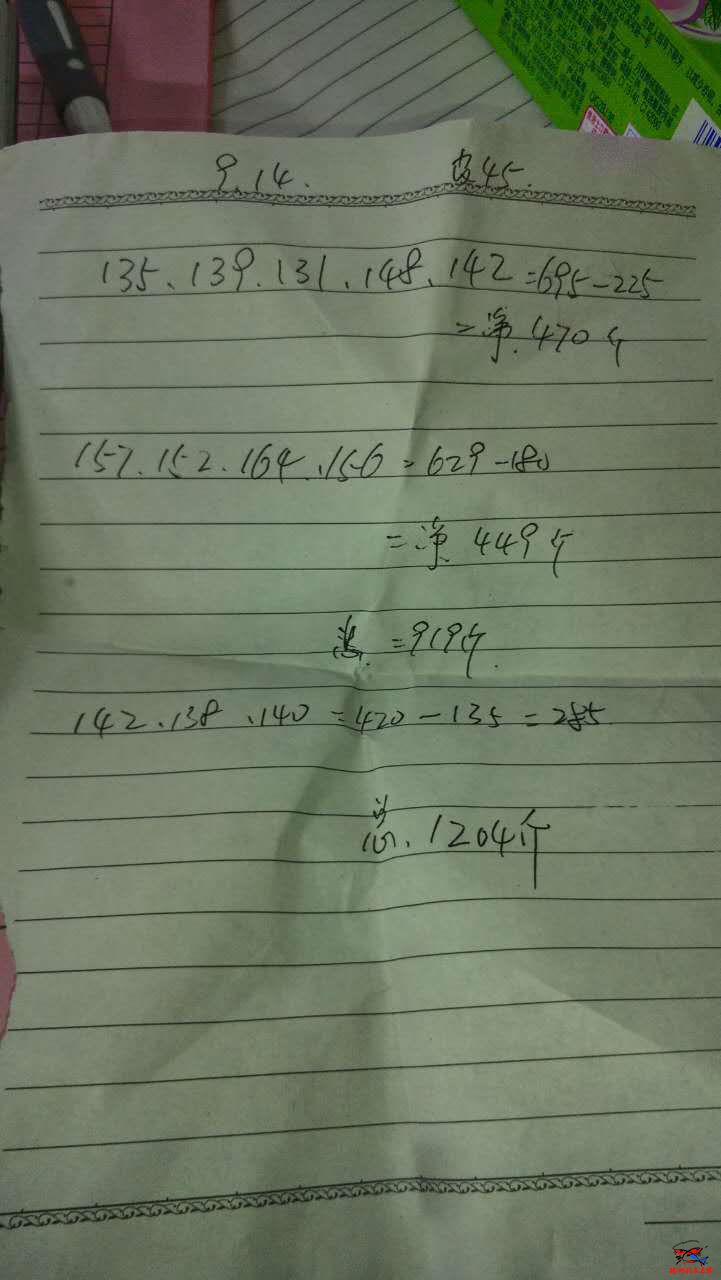 9.14. 皮45.
135、139.131、148、142=695-225
=净.470斤
157.152.164.156=629-180
=净 449斤
总.=919斤.
142.138.140=420-135=285
总.1204斤